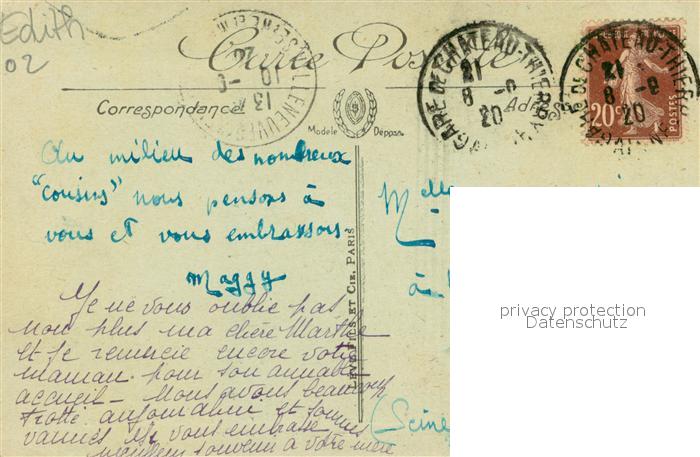 Edith
02
Carte Postale
Correspondance
Adresse
Modèle Déposé
Au milieu des nombreux
"cousins" nous pensons à
vous et vous embrassons
Maggy
Je ne vous oublie pas
non plus ma chère Marthe
et je remercie encore votre
maman pour son aimable
accueil – Nous avons beaucoup
trotté aujourd'hui et sommes
vannés. Je vous embrasse
meilleur souvenir à votre mère
LEVY FILS ET CIE, PARIS
Melle
à
(Seine
GARE DE CHATEAU-THIERRY
21
8 -8
20
AISNE
GARE DE CHATEAU-THIERRY
21
8 -8
20
AISNE
20c
POSTES
VILLENEUVE
13
10 -8
20
privacy protection
Datenschutz